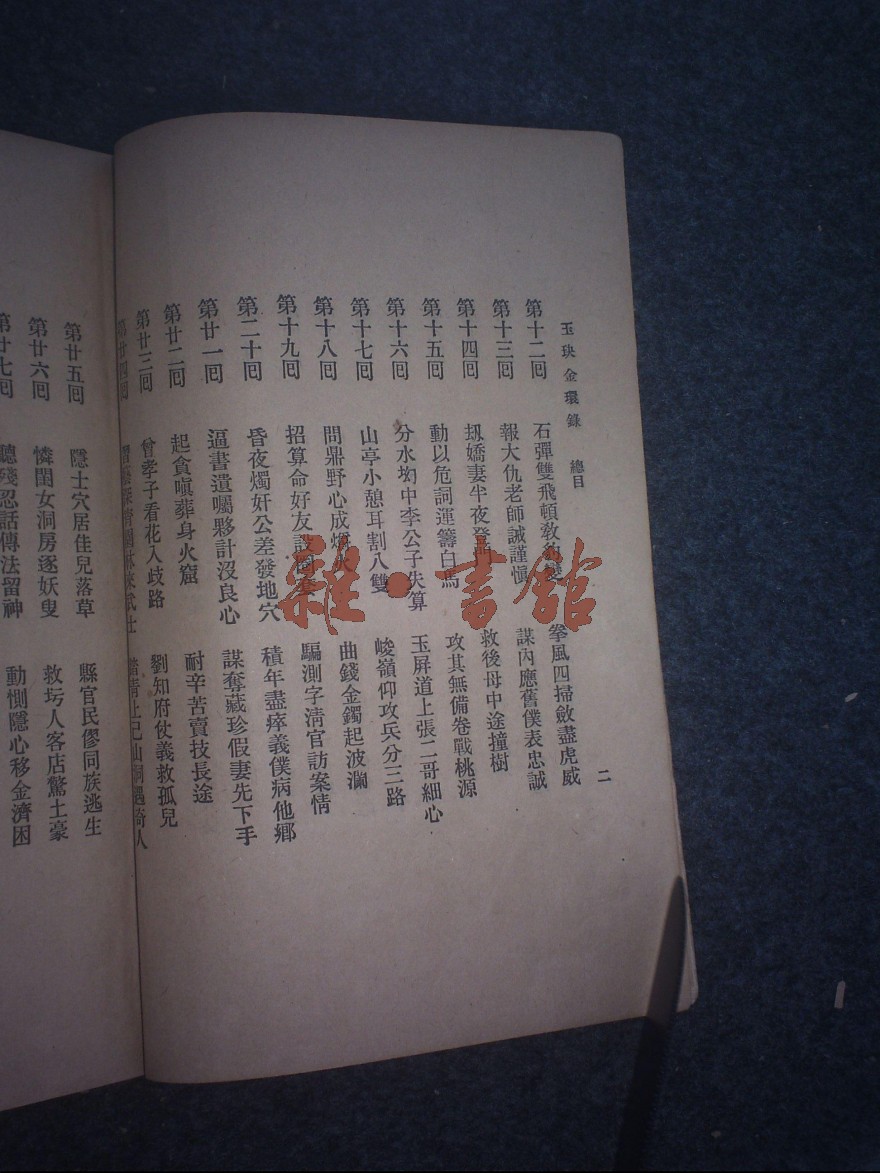 玉玦金環錄 總目
二
第十二回 石彈雙飛頓教 拳風四掃斂盡虎威
第十三回 報大仇老師誡謹愼 謀內應舊僕表忠誠
第十四回 刼嬌妻半夜登 救後母中途撞樹
第十五回 動以危詞運籌白馬 攻其無備卷戰桃源
第十六回 分水坳中李公子失算 玉屏道上張二哥細心
第十七回 山亭小憩耳割八雙 峻嶺仰攻兵分三路
第十八回 問鼎野心成 曲錢金鐲起波瀾
第十九回 招算命好友設 騙測字淸官訪案情
第二十回 昏夜燭奸公差發地穴 積年盡瘁義僕病他鄉
第廿一回 逼書遺囑夥計沒良心 謀奪藏珍假妻先下手
第廿二回 起貪嗔葬身火窟 耐辛苦賣技長途
第廿三回 曾孝子看花入歧路 劉知府仗義救孤兒
第廿四回 林來武士 踏靑上巳山洞遇奇人
第廿五回 隱士穴居佳兒落草 縣官民僇同族逃生
第廿六回 憐閨女洞房逐妖叟 救圬人客店驚土豪
第廿七回 聽殘忍話傳法留神 動惻隱心移金濟困
雜·書館